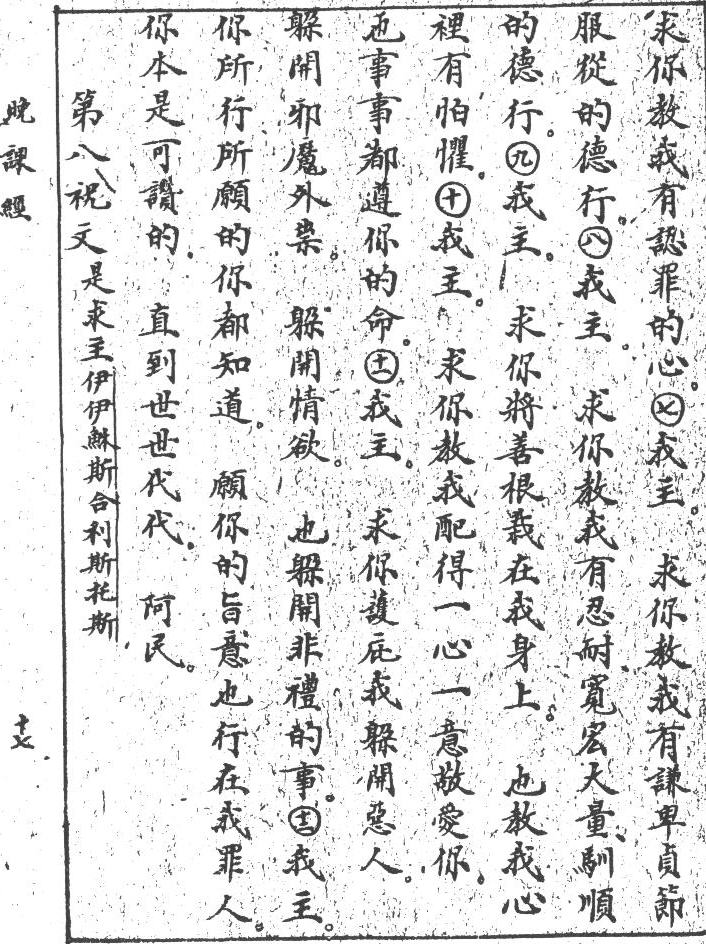 求你教我有認罪的心。㊆我主。 求你教我有謙卑貞節
服從的德行。㊇我主。 求你教我有忍耐、寬宏大量、馴順
的德行。㊈我主。 求你將善根栽在我身上。 也教我心
裡有怕懼。㊉我主。 求你教我配得一心一意敬愛你。
也事事都遵你的命。⑪我主。 求你護庇我躲開惡人。
躲開邪魔外祟。 躲開情欲。 也躲開非禮的事。⑫我主。
你所行所願的你都知道。 願你的旨意也行在我罪人。
你本是可讚的、 直到世世代代、 阿民。
第八祝文 是求主伊伊穌斯合利斯托斯
晚課經
十七